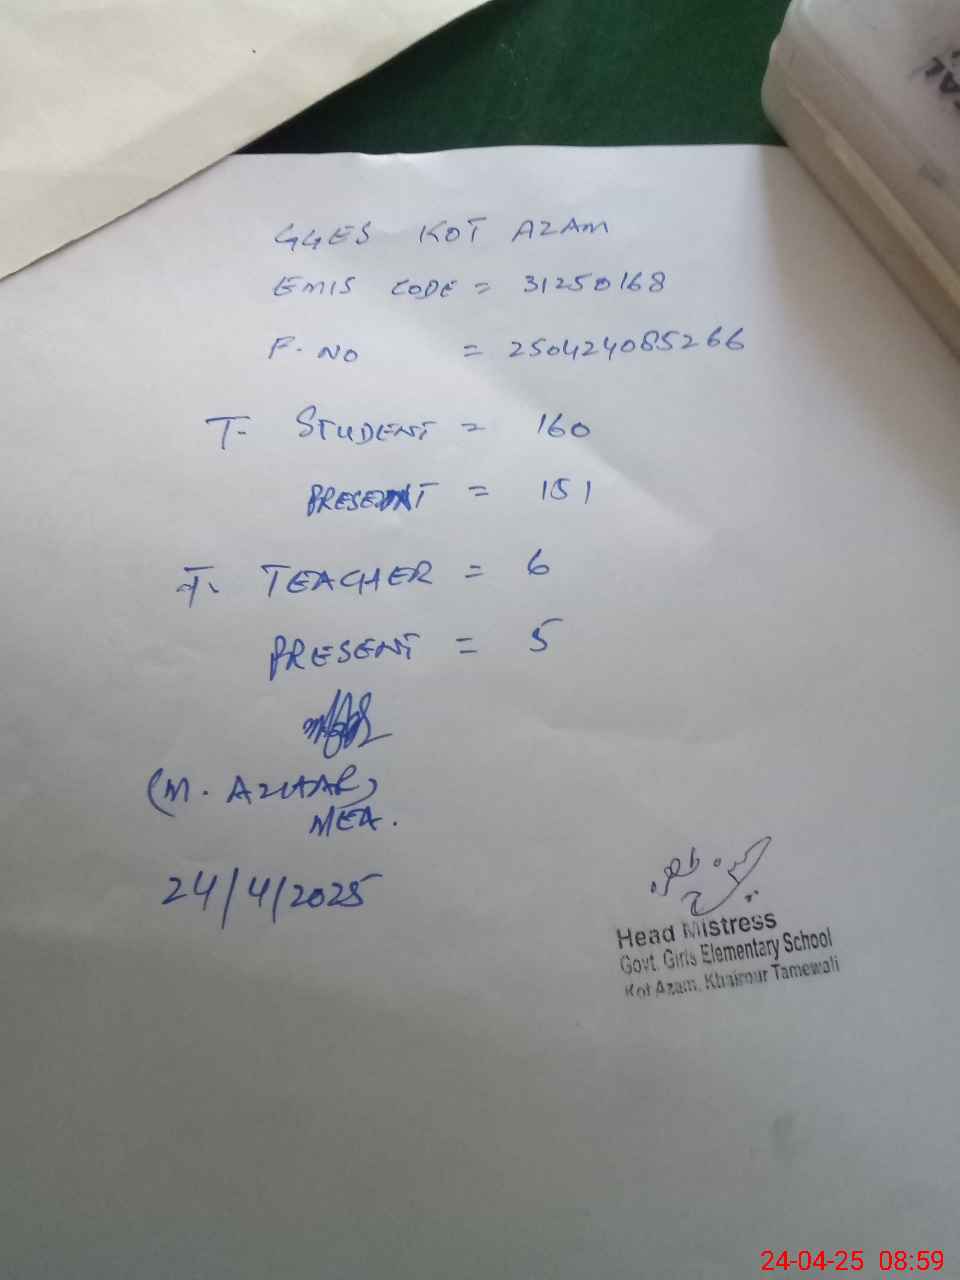 GGES KOT AZAM
EMIS CODE = 31250168
F. NO = 250424085266
T- STUDENT = 160
PRESENT = 151
T. TEACHER = 6
PRESENT = 5
(M. AZHAR)
MEA.
24/4/2025
Head Mistress
Govt. Girls Elementary School
Kot Azam, Khairpur Tamewali
24-04-25 08:59